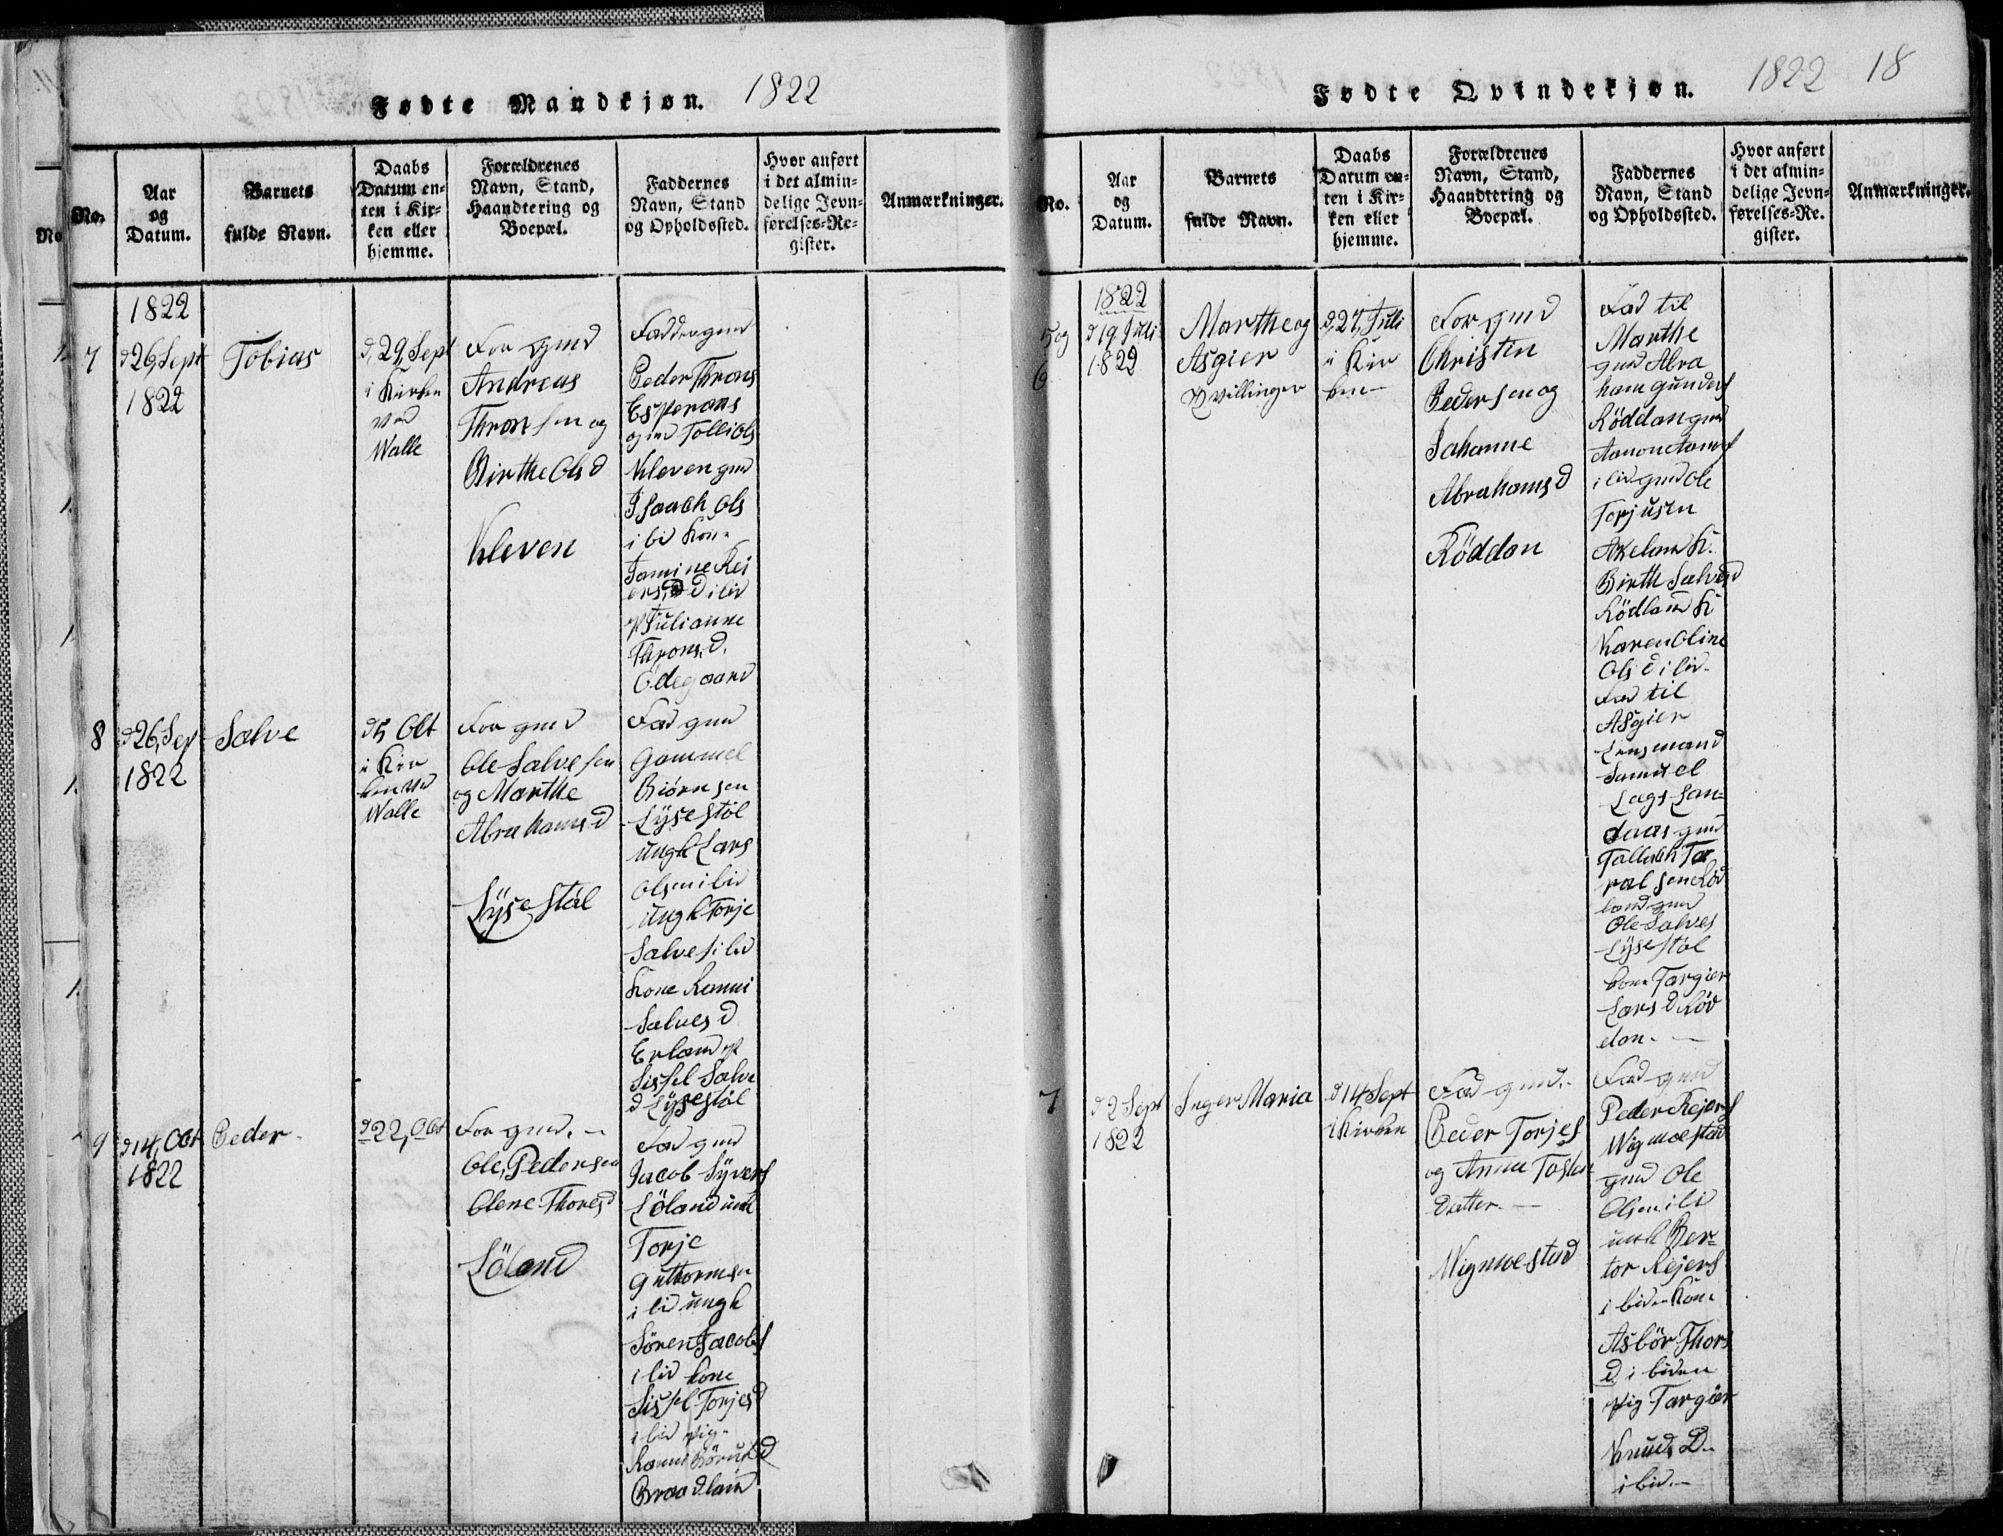 Fødte Mandkjøn. 1822
No.
Aar og Datum.
Barnets fulde Navn.
Daabs Datum enten i Kirken eller hjemme.
Forældrenes Navn, Stand, Haandtering og Boepæl.
Faddernes Navn, Stand og Opholdssted.
Hvor anført i det almindelige Jevnførelses-Register.
Anmærkninger.
7
1822
d26, Sept
1822
Tobias
d, 29, Sept
i Kirken
ved
Walle
For gmd
Andreas
Thronsen og
Birthe Ols d
Kleven
Fadder gmd
Peder Throns
Esperaas
Kleven gmd
Isaach Ols
i bid Kone
Jamine Rei
ers D i bid
Julianne
Throns. d.
Ödegaard
8
d26, Sep
1822
Salve
d5 Okt
i Kir
ken ved
Walle
For gmd
Ole Salvesen
og Marthe
Abrahams d
Lÿsestöl
Fad gmd
Gammel
Biörnsen
Lÿsestöl
ungk Lars
Olsen ibid
ungk Torje
Salves ibid
Kone Ranni
Salves d
Erland
Sissel Salve
d Lÿsestöl
9
d14, Oct
1822
Peder
d22, Oct
For gmd. –
Ole, Pedersen
Olene Thores d
Löland
Fad gmd
Jacob Sÿvers
Löland unk
Torje
Guttormsen
i bid ungk
Sören Jacobs
i bid kone
Sissel Torjesd
i bid pig.
Braadland
Fødte Qvindekjøn. 1822 18
No.
Aar og Datum.
Barnets fulde Navn.
Daabs Datum enten i Kirken eller hjemme.
Forældrenes Navn, Stand, Haandtering og Boepæl.
Faddernes Navn, Stand og Opholdssted.
Hvor anført i det almindelige Jevnførelses-Register.
Anmærkninger.
5 og
6
1822
d19 Juli
1822
Marthe og
Asgier
Tvillinger
d, 27, Juli
i Kir
ken –
For gmd
Christen
Pedersen og
Johanne
Abrahams d
Röddan
Fad til
Marthe
gmd Abra
ham gunders
Röddan gmd
i bid gmd Ole
Torjusen
Birthe Salves d
Rödland K
Karen Oline
Ols d i bid.
Fad til
Asgier
Lensmand
Samuel
Lags Lan=
daas gmd
Tallach Ta
ralsen Röd
land gmd
Ole Salves
Lÿsestöl
kone Targier
Lars d Röd
dan. –
7
d 2 Sept
1822
Inger Maria
d14 Sept
i Kirken
Fad gmd. –
Peder Torjes
og Anna Tosten
datter. –
Wigmoestad
Fad gmd
Peder Rejers
Wigmoestad
gmd Ole
Olsen ibid
unk Ber=
tor Rejers
i biden Kone
Asbör Thors
D. i biden
pig Targier
Knuds D.
i bid. –